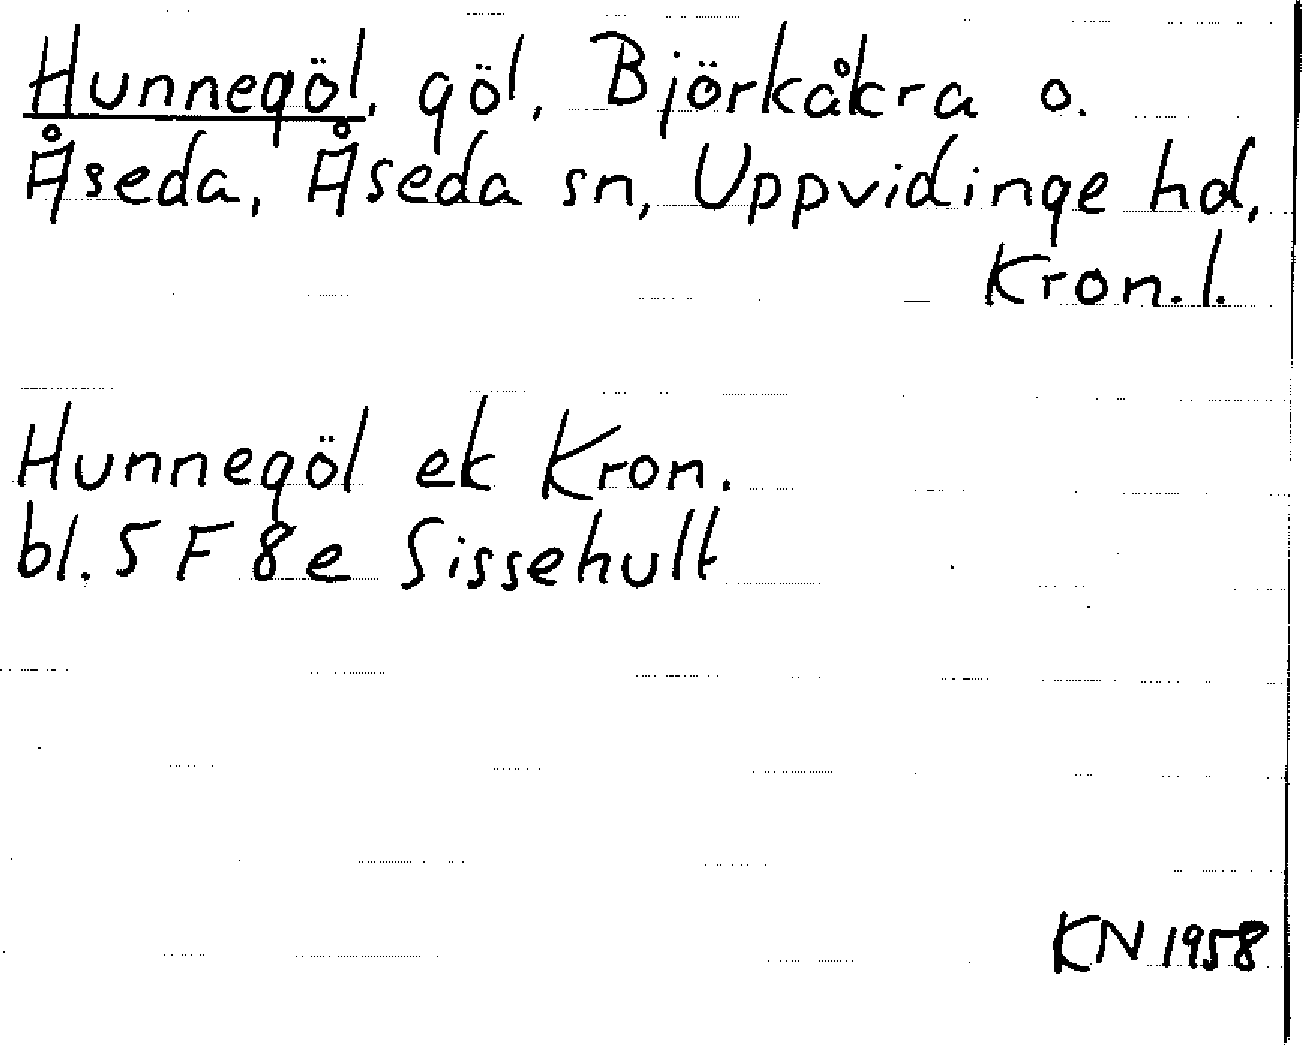 Hunnegöl, göl, Björkåkra o.
Åseda, Åseda sn, Uppvidinge hd,
Kron.l.
Hunnegöl ek Kron.
bl. 5 F 8 e Sissehult
KN 1958